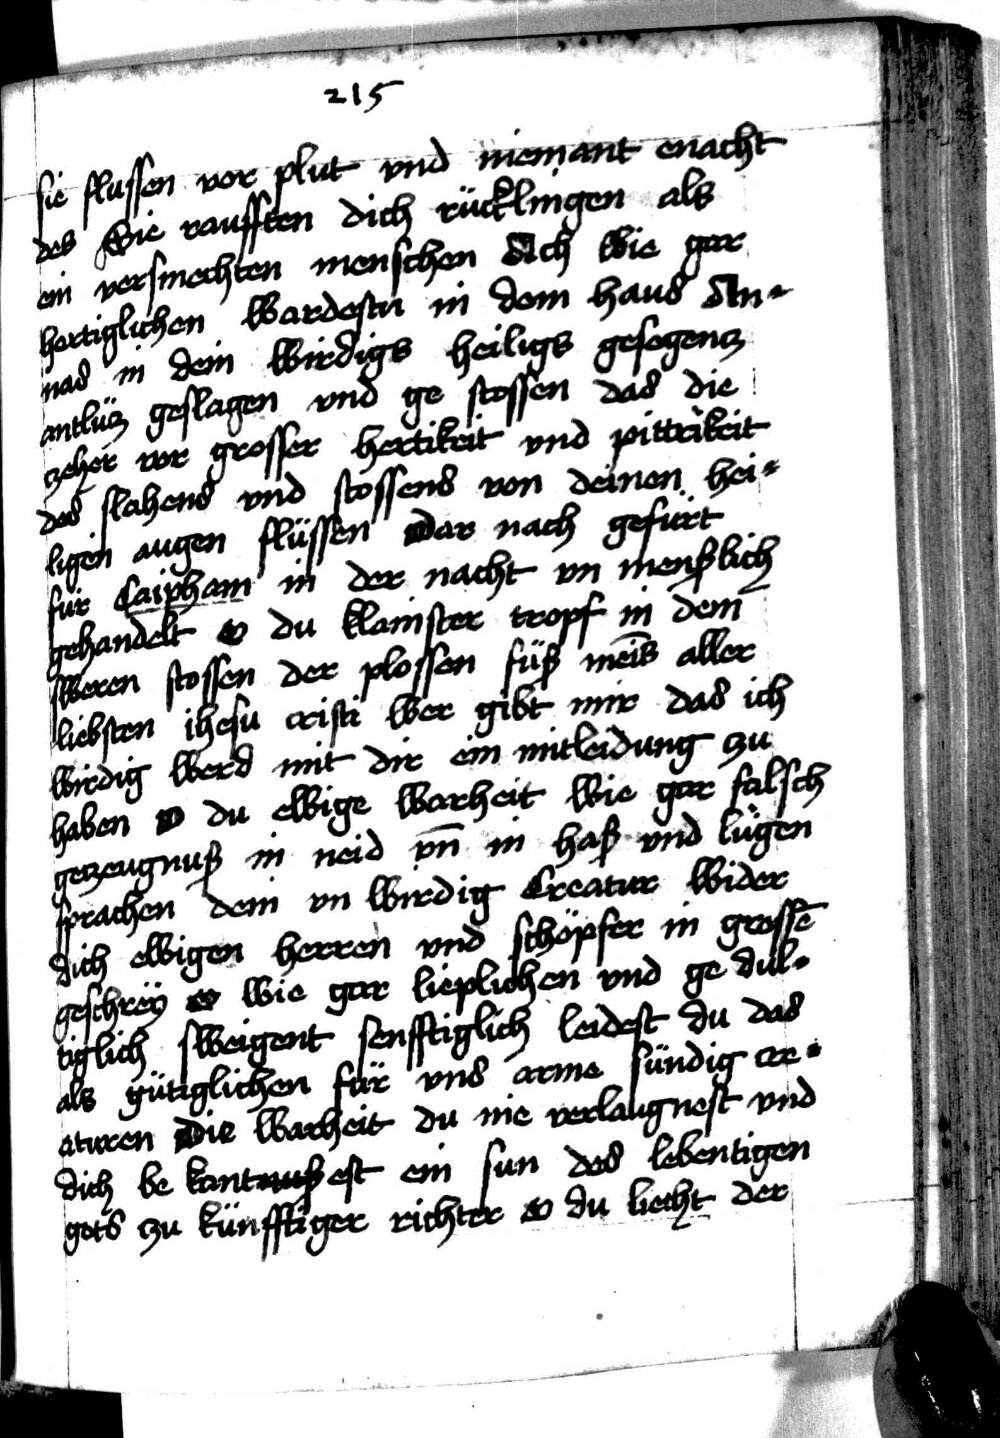 215
sie flussen vor plut vnd niemant enacht
des Sie raufften dich rücklingen als
ein versmechten menschen Ach wie gar
hertiglichen wardestu in dem haus An-
nas in dein wirdigs heiligs gesegencz
antlücz geslagen vnd ge stossen das die
zeher vor grosser hertikeit vnd pittrikeit
des slahens vnd stossens von deinen hei-
ligen augen flüssen Dar nach gefürt
für Caipham in der nacht vn menschlich
gehandelt O du klainster tropf in dem
sweren stossen der plossen füß meīs aller
liebsten ihesu cristi wer gibt mir das ich
wirdig werd mit dir ein mitleidung zu
haben O du ewige warheit wie gar falsch
getzeugnuß in neid vn̄ in haß vnd lügen
sprachen dein vn wirdig Creatur wider
dich ewigen herren vnd schöpfer in grossē
geschrey O wie gar lieplichen vnd ge dul-
tiglich sweigent senfftiglich leidest du das
als gütiglichen für vns arme sündig cre-
aturen Die warheit du nie verlaugnest vnd
dich be kantnuß est ein sun des lebentigen
gots zu künfftiger richter O du liecht der